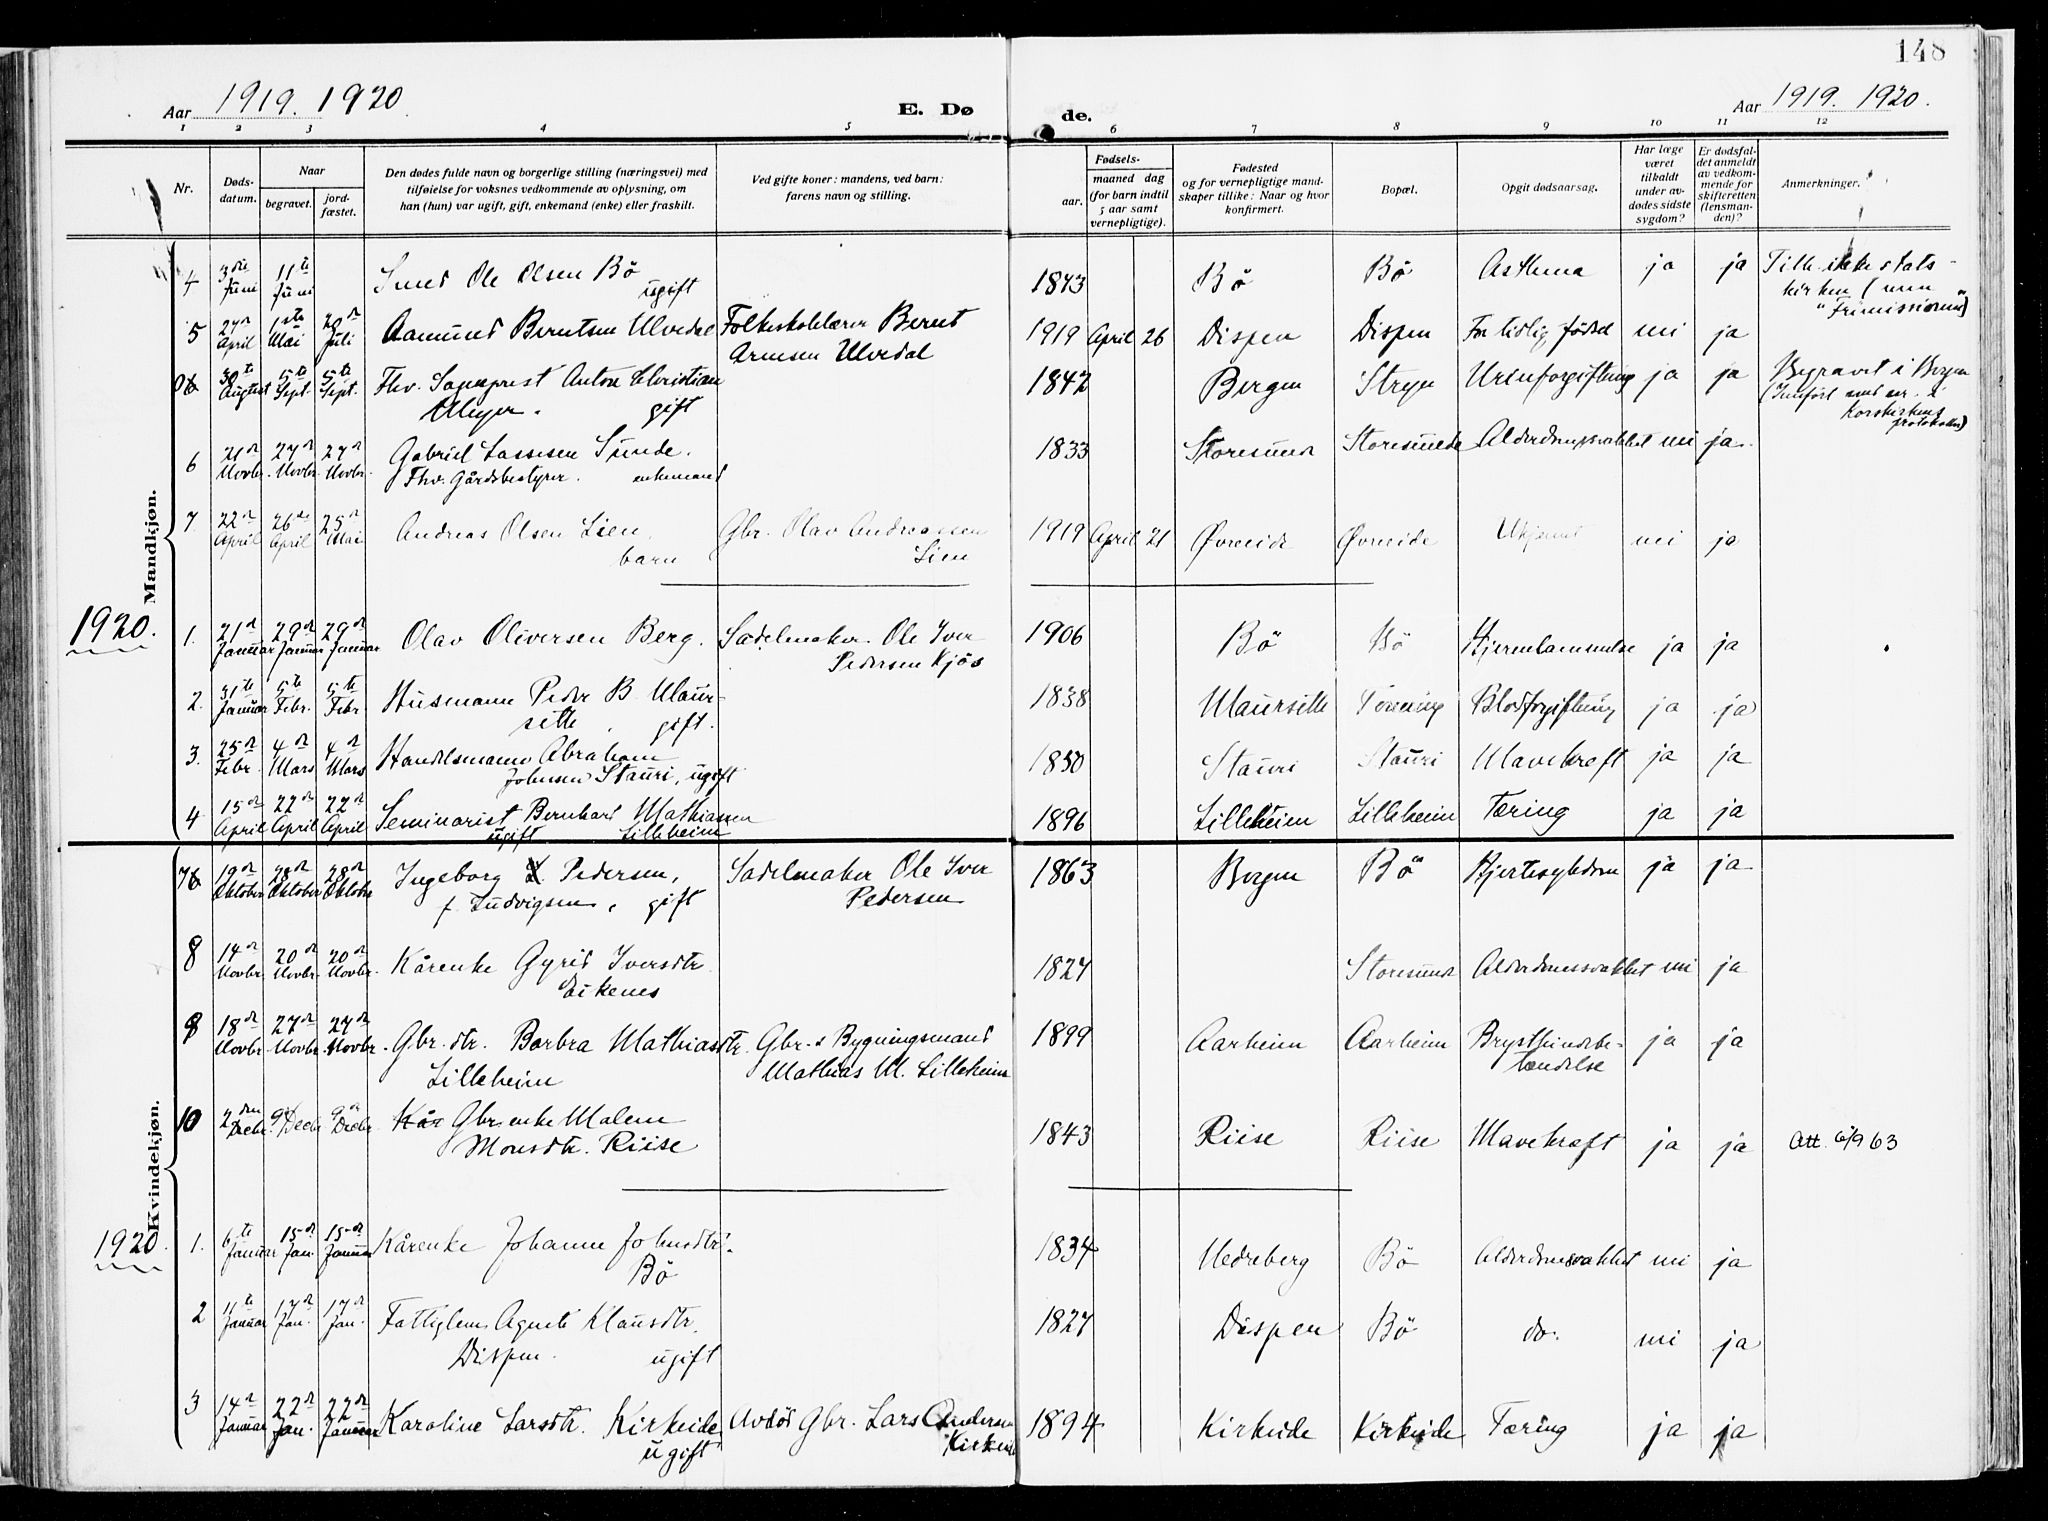 148
Aar 1919. 1920
E. Dø
de.
Aar 1919. 1920.
1 2 3 4 5 6 7 8 9 10 11 12
Nr.
Døds-
datum.
Naar
begravet.
jord-
fæstet.
Den dødes fulde navn og borgerlige stilling (næringsvei) med
tilføielse for voksnes vedkommende av oplysning, om
han (hun) var ugift, gift, enkemand (enke) eller fraskilt.
Ved gifte koner: mandens, ved barn:
farens navn og stilling.
Fødsels-
aar.
maaned dag
(for barn indtil
5 aar samt
vernepligtige).
Fødested
og for vernepligtige mand-
skaper tillike: Naar og hvor
konfirmert.
Bopæl.
Opgit dødsaarsag.
Har læge
været
tilkaldt
under av-
dødes sidste
sygdom?
Er dødsfal-
det anmeldt
av vedkom-
mende for
skifteretten
(lensman-
den)?
Anmerkninger.
Mandkjøn.
4 3die Juni 11te Juni Smed Ole Olsen Bö ugift 1843 Bö Bö Asthma ja ja Tilh. ikke stats-
kirken (men
"Frimissionen")
5 27d April 1ste Mai 20d Juli Aamund Berntsen Ulvedal Folkeskolelærer Bernt
Arnesen Ulvedal 1919 April 26 Dispen Dispen For tidlig födsel nei ja
30te August 5te Sept. 5te Sept. Fhv. Sogneprest Anton Christian
Meyer. gift 1842 Bergen Stryn Urinforgiftning ja ja Begravet i Bergen
(Indfört med nr. i
Korskirkens
protokoller)
6 21d Novbr. 27d Novbr. 27d Novbr. Gabriel Lassesen Sunde.
Fhv. Gårdsbestyrer. enkemand 1833 Storesunde Storesunde Alderdomssvakhet nei ja.
7 22d April 26de April 25d Mai Andreas Olsen Lien
barn Gbr. Olav Andreassen
Lien 1919 April 21 Øvreeide Øvreeide Ukjent nei ja
1920.
1. 21d Januar 29d Januar 29d Januar Olav Oliversen Berg. Sadelmaker Ole Iver
Pedersen Kjös 1906 Bö Bö Hjernelammelse ja ja
2. 31te Januar 5te Febr. 5te Febr. Husmann Peder B. Maur-
sette, gift. 1838 Maursette Tonning Blodforgiftning ja ja
3. 25d Febr. 4d Mars 4d Mars Handelsmann Abraham
Johnsen Stauri, ugift 1850 Stauri Stauri Mavekræft ja ja
4 15d April 22d April 22d April Seminarist Bernhard Mathiassen
ugift Lilleheim 1896 Lilleheim Lilleheim Tæring ja ja
Kvindekjøn.
7 19d Oktober 28d Oktober 28d Oktober Ingeborg L Pedersen,
f. Ludvigsen, gift Sadelmaker Ole Iver
Pedersen 1863 Bergen Bö Hjertesykdom ja ja
8 14d Novbr. 20d Novbr. 20d Novbr. Kårenke Gyrid Iversdtr.
Eikenes 1827 Storesunde Alderdomssvakhet nei ja
9 18d Novbr. 27d Novbr. 27d Novbr. Gbr. dtr. Barbra Mathiasdtr.
Lilleheim Gbr. & Bygningsmand
Mathias M. Lilleheim 1899 Aarheim Aarheim Brysthindebe-
tændelse ja ja
10 2den Decbr. 9 Decbr 9d Decbr Kår Gbr.enke Malene
Monsdtr. Riise 1843 Riise Riise Mavekræft ja ja Att. 6/9 63
1920.
1. 6te Januar 15d Jan. 15d Januar Kårenke Johanne Johnsdtr.
Bö 1834 Nedreberg Bö Alderdomssvakhet nei ja
2 11te Januar 17d Jan. 17d Jan. Fattiglem Agnete Klausdtr.
Dispen. ugift 1827 Dispen Bö do. nei ja
3 14d Januar 22d Jan. 22d Januar Karoline Larsdtr. Kirkeide
ugift Avdöd Gbr. Lars Andersen
Kirkeide 1894 Kirkeide Kirkeide Tæring ja ja